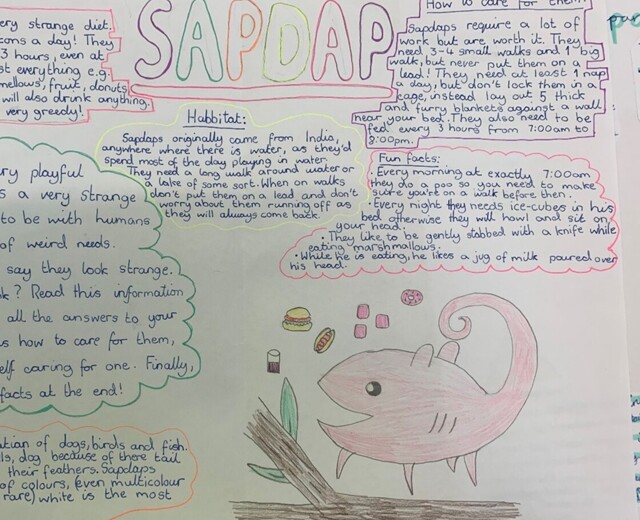 ery strange diet.
cons a day! They
3 hours, even at
st everything e.g.
mellows, fruit, donuts,
will also drink anything.
very greedy!
SAPDAP
How to care for them:
Sapdaps require a lot of
work but are worth it. They
need 3-4 small walks and 1 big
walk, but never put them on a
lead! They need at least 1 nap
a day, but don't lock them in a
cage, instead lay out 5 thick
and furry blankets against a wall
near your bed. They also need to be
fed every 3 hours from 7:00am to
8:00pm.
Habbitat:
Sapdaps originally came from India,
anywhere where there is water, as they'd
spend most of the day playing in water.
They need a long walk around water or
a lake of some sort. When on walks
don't put them on a lead and don't
worry about them running off as
they will always come back.
Fun facts:
• Every morning at exactly 7:00am
they do a poo so you need to make
sure you're on a walk before then.
• Every night they needs ice-cubes in his
bed otherwise they will howl and sit on
your head.
• They like to be gently stabbed with a knife while
eating marshmallows.
• While he is eating, he likes a jug of milk paured over
his head.
ry playful
s a very strange
to be with humans
of weird needs.
say they look strange.
k? Read this information
all the answers to your
s how to care for them,
elf caring for one. Finally,
facts at the end!
ation of dogs, birds and fish.
ls, dog because of there tail
their feathers. Sapdaps
of colours, (even multicolour
rare) white is the most